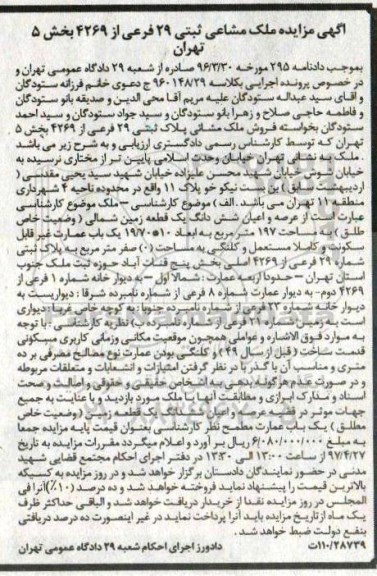 آگهی مزایده ملک مشاعی ثبتی ۲۹ فرعی از ۴۲۶۹ بخش ۵
تهران
بموجب دادنامه ۲۹۵ مورخه ۹۶/۳/۳۰ صادره از شعبه ۲۹ دادگاه عمومی تهران و
در خصوص پرونده اجرایی بکلاسه ۹۶۰۱۴۸/۲۹ ج دعوی خانم فرزانه ستودگان
و آقای سید عبداله ستودگان علیه مریم آقا محی الدین و صدیقه بانو ستودگان
و فاطمه حاجی صلاح و زهرا بانو ستودگان و سید جواد ستودگان و سید احمد
ستودگان بخواسته فروش ملک مشاعی پلاک ثبتی ۲۹ فرعی از ۴۲۶۹ بخش ۵
تهران که توسط کارشناس رسمی دادگستری ارزیابی و به شرح زیر می باشد
. ملک به نشانی تهران خیابان وحدت اسلامی پایین تر از مختاری نرسیده به
خیابان شوش خیابان شهید محسن علیزاده خیابان شهید سید یحیی مقدسی (
اردیبهشت سابق) بن بست نیکو خو پلاک ۱۱ واقع در محدوده ناحیه ۴ شهرداری
منطقه ۱۱ تهران می باشد. الف) موضوع کارشناسی – ملک موضوع کارشناسی
عبارت است از عرصه و اعیان شش دانگ یک قطعه زمین شمالی ( وضعیت خاص
طلق ) به مساحت ۱۹۷ متر مربع به ابعاد ۱۰*۱۹/۷ یک باب عمارت غیر قابل
سکونت و کاملا مستعمل و کلنگی به مساحت (۰) صفر متر مربع به پلاک ثبتی
شماره ۲۹ فرعی از ۴۲۶۹ اصلی بخش پنج قنات آباد حوزه ثبت ملک جنوب
استان تهران – حدود اربعه عمارت : شمالا اول – به دیوار خانه شماره ۱ فرعی از
۴۲۶۹ دوم- به دیوار عمارت شماره ۸ فرعی از شماره نامبرده شرقا : دیواریست به
دیوار خانه شماره فرعی از شماره نامبرده جنوبا : به کوچه خاص غربا : دیواری
است به زمین شماره ۲۸ فرعی از شماره نامبرده ب) نظریه کارشناسی : با توجه
به موارد فوق الاشاره و عواملی همچون موقعیت مکانی وزمانی کاربری مسکونی
قدمت ساخت ( قبل از سال ۴۹ ) و کلنگی بودن عمارت نوع مصالح مصرفی بر ده
متری و مناسب آن با گذر با در نظر گرفتن امتیازات و انشعابات و متعلقات مربوطه
و در صورت عدم هرگونه بدهی به اشخاص حقیقی و حقوقی و اصالت و صحت
اسناد و مدارک ابرازی و مطابقت آنها با ملک مورد بازدید و با عنایت به جمیع
جهات موثر در قضیه عرصه و اعیان شش دانگ یک قطعه زمین ( وضعیت خاص
مطلق ) یک باب عمارت مطمح نظر کارشناسی بعنوان قیمت پایه مزایده جمعا
به مبلغ ۶/۰۸۰/۰۰۰/۰۰۰ ریال بر آورد و اعلام میگردد مقررات مزایده به تاریخ
۹۷/۴/۲۷ از ساعت ۱۳:۰۰ الی ۱۳:۳۰ در دفتر اجرای احکام مجتمع قضایی شهید
مدنی در حضور نمایندگان دادستان بر گزار خواهد شد و در روز مزایده به کسیکه
بالاترین قیمت را پیشنهاد نماید فروخته خواهد شد و ده درصد (۱۰٪) آنرا فی
المجلس در روز مزایده نقدا از خریدار دریافت خواهد شد و الباقی حداکثر ظرف
یک ماه از تاریخ مزایده باید آنرا پرداخت نماید در غیر اینصورت ده درصد دریافتی
بنفع دولت ضبط خواهد شد.
۱۱۰/۲۸۷۳۹ت دادورز اجرای احکام شعبه ۲۹ دادگاه عمومی تهران